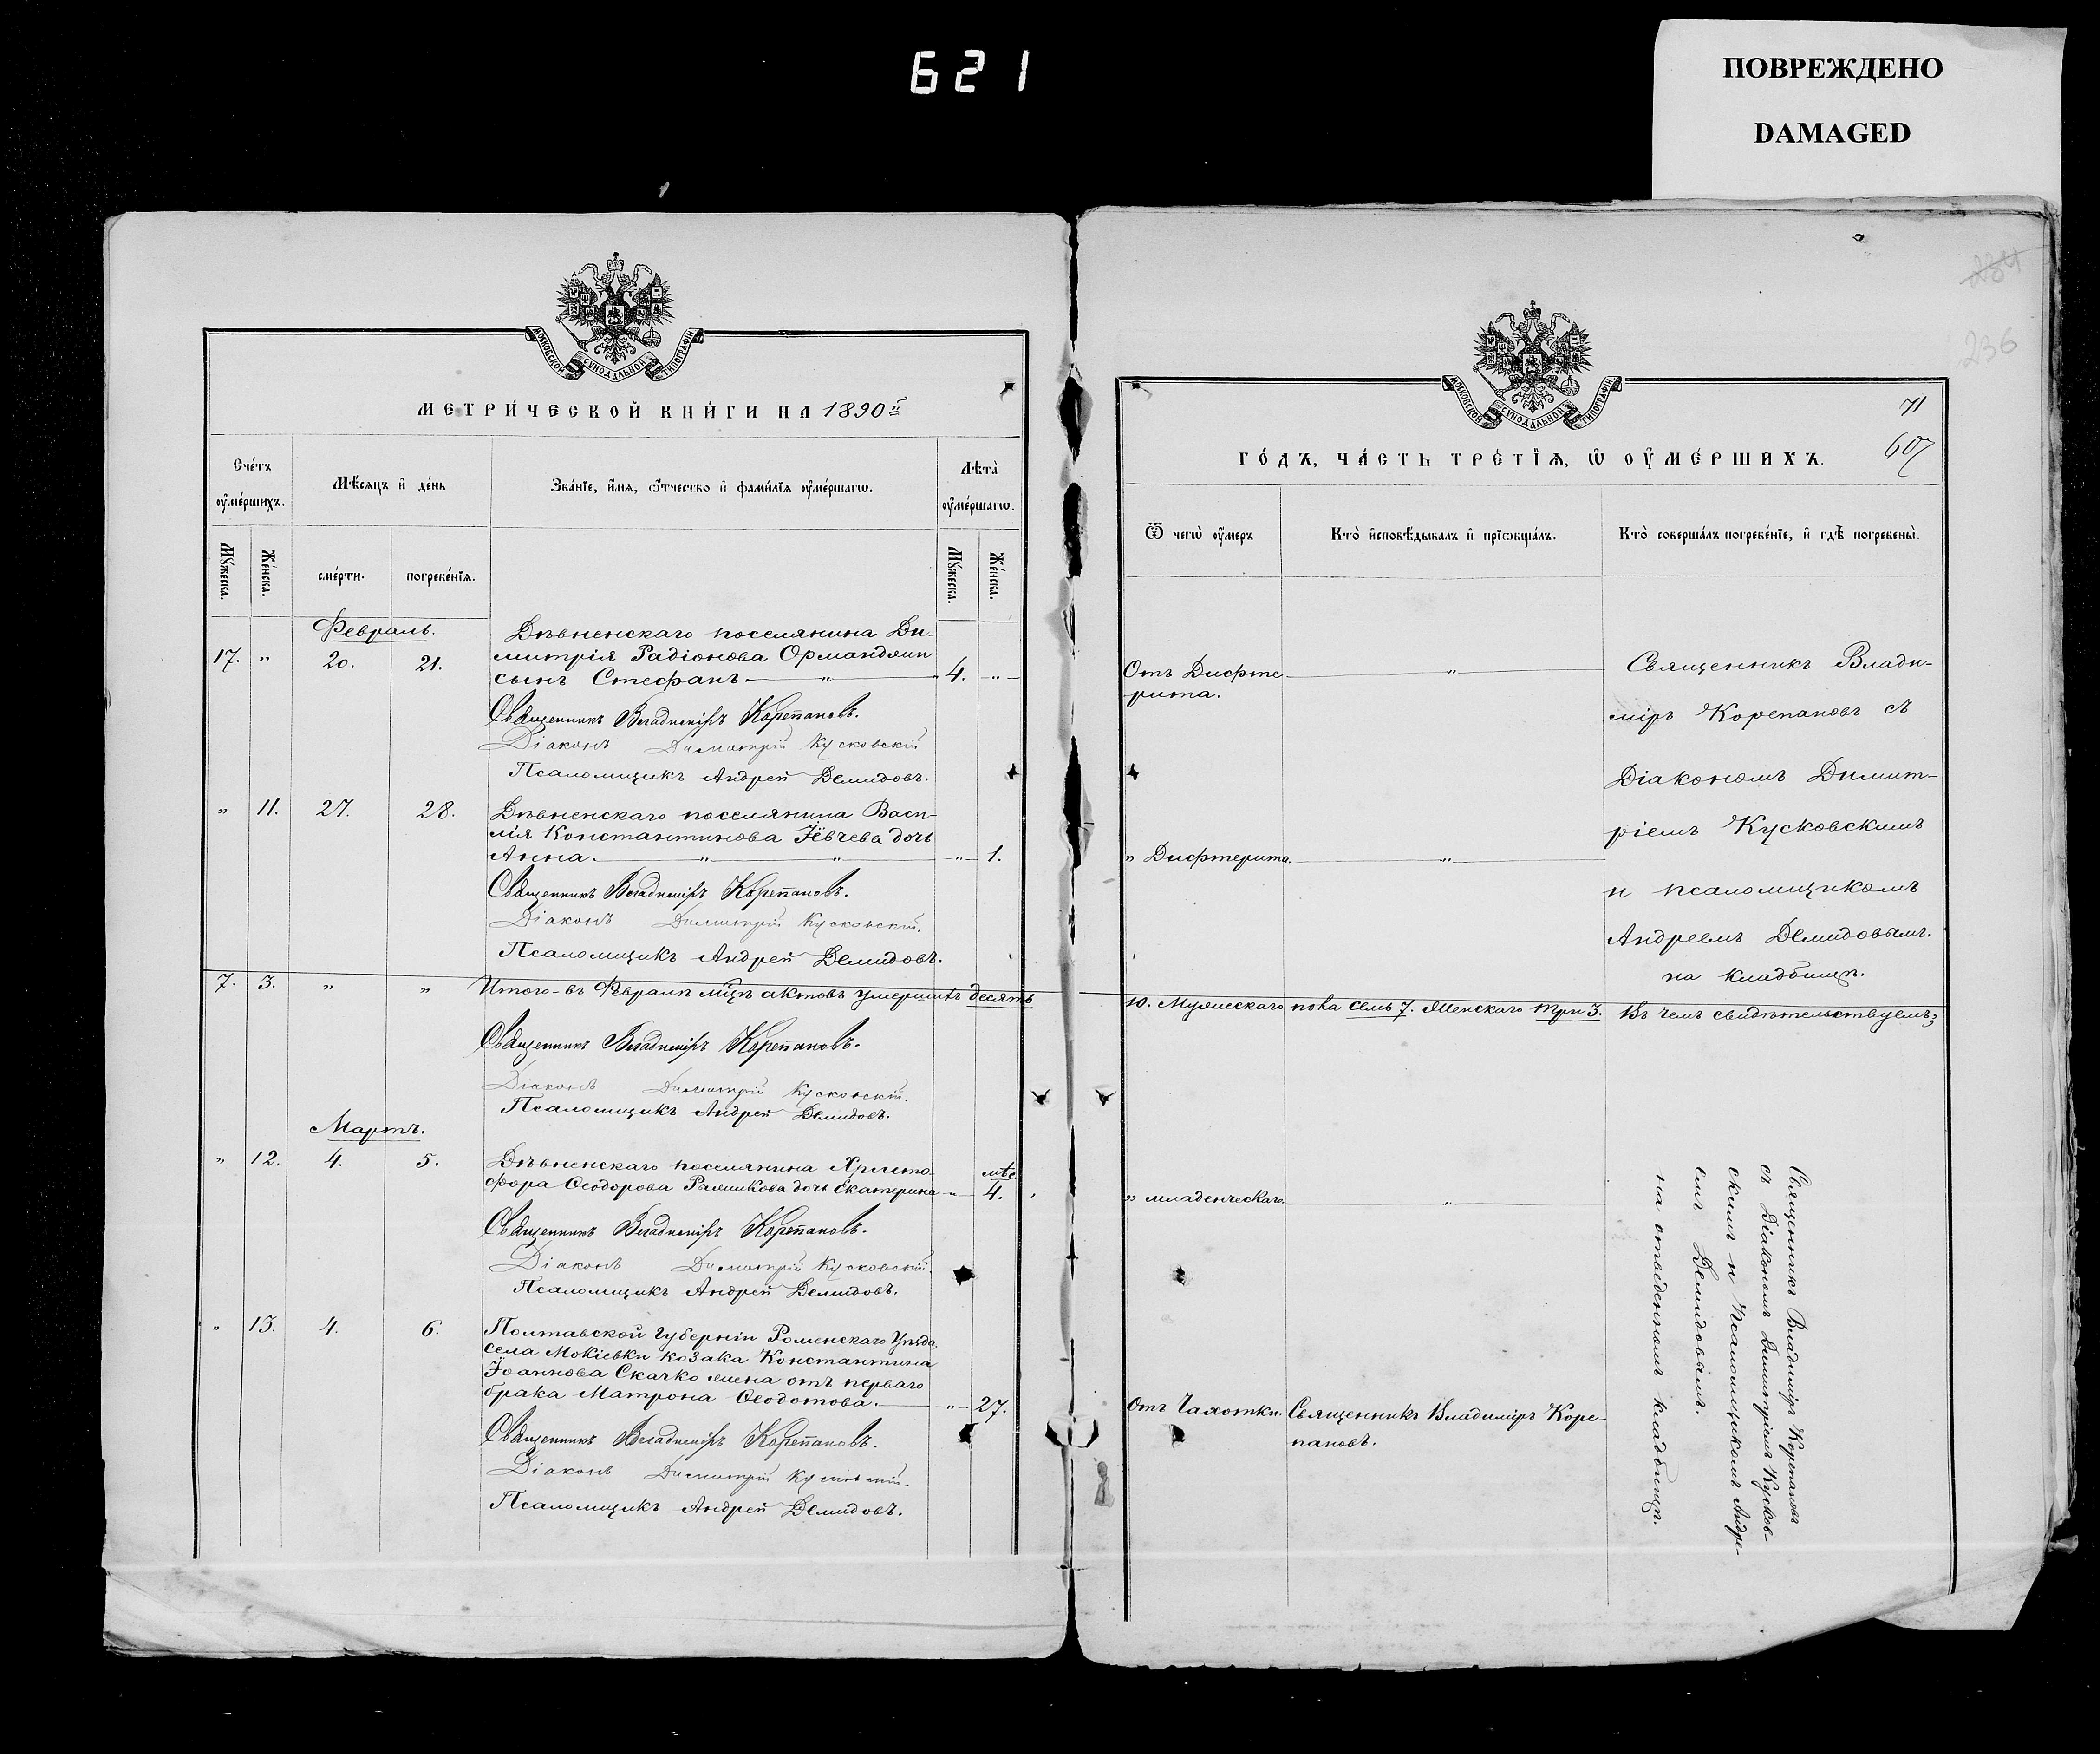 621
ПОВРЕЖДЕНО
DAMAGED
МОСКОВСКОЙ СѴНОДАЛЬНОЙ ТИПОГРАФІИ
МЕТРИ́ЧЕСКОЙ КНИ́ГИ НА 1890 й
Сче́тъ оу҆ме́ршихъ.
Мѣ́сяцъ и҆ де́нь
Зва́нїе, и҆́мя, ѻ҆́тчество и҆ фами́лїя оу҆ме́ршагѡ.
Лѣта̀ оу҆ме́ршагѡ.
Мꙋ́жеска.
Же́нска.
сме́рти.
погребе́нїя.
Мꙋ́жеска.
Же́нска.
Февраль.
17. " 20. 21.
Дѣвненскаго поселянина Ди-
митрія Радіонова Орманджи
сынъ Стефанъ — " — 4. "
Священникъ Владиміръ Корепановъ.
Діаконъ Димитрій Кусковскій
Псаломщикъ Андрей Демидовъ.
" 11. 27. 28.
Дѣвненскаго поселянина Васи-
лія Константинова Іовчева дочь
Анна. — " — " — " 1.
Священникъ Владиміръ Корепановъ.
Діаконъ Димитрій Кусковскій.
Псаломщикъ Андрей Демидовъ.
7. 3. " " Итого въ Февралѣ мцѣ актовъ умершихъ десять
Священникъ Владиміръ Корепановъ.
Діаконъ Димитрій Кусковскій.
Псаломщикъ Андрей Демидовъ.
Мартъ.
" 12. 4. 5.
Дѣвненскаго поселянина Христо-
фора Ѳеодорова дочь Екатерина " мѣс. 4.
Священникъ Владиміръ Корепановъ.
Діаконъ Димитрій Кусковскій.
Псаломщикъ Андрей Демидовъ.
" 13. 4. 6.
Полтавской губерніи Роменскаго уѣзда,
села Мокіевки козака Константина
Іоаннова Скачко жена отъ перваго
брака Матрона Ѳеодотова. — " 27.
Священникъ Владиміръ Корепановъ.
Діаконъ Димитрій Кусковскій.
Псаломщикъ Андрей Демидовъ.
234
236
МОСКОВСКОЙ СѴНОДАЛЬНОЙ ТИПОГРАФІИ
71
607
ГО́ДЪ, ЧА́СТЬ ТРЕ́ТЇѦ, Ѡ҆ ОУ҆МЕ́РШИХЪ.
Ѿ чегѡ̀ оу҆́меръ
Кто̀ и҆сповѣ́дывалъ и҆ прїѡбща́лъ.
Кто̀ соверша́лъ погребе́нїе, и҆ гдѣ̀ погребены̀.
Отъ Дифте-
рита. "
Священникъ Влади-
міръ Корепановъ съ
Діакономъ Димит-
ріемъ Кусковскимъ
и псаломщикомъ
Андреемъ Демидовымъ.
на кладбищѣ.
" Дифтерита. "
10. Мужескаго пола семь 7. Женскаго три 3. Въ чемъ свидѣтельствуемъ;
" младенческаго. "
Отъ Чахотки.
Священникъ Владиміръ Коре-
пановъ.
Священникъ Владиміръ Корепановъ
съ Діакономъ Димитріемъ Кусков-
скимъ и Псаломщикомъ Андре-
емъ Демидовымъ.
на отведенномъ кладбищѣ.